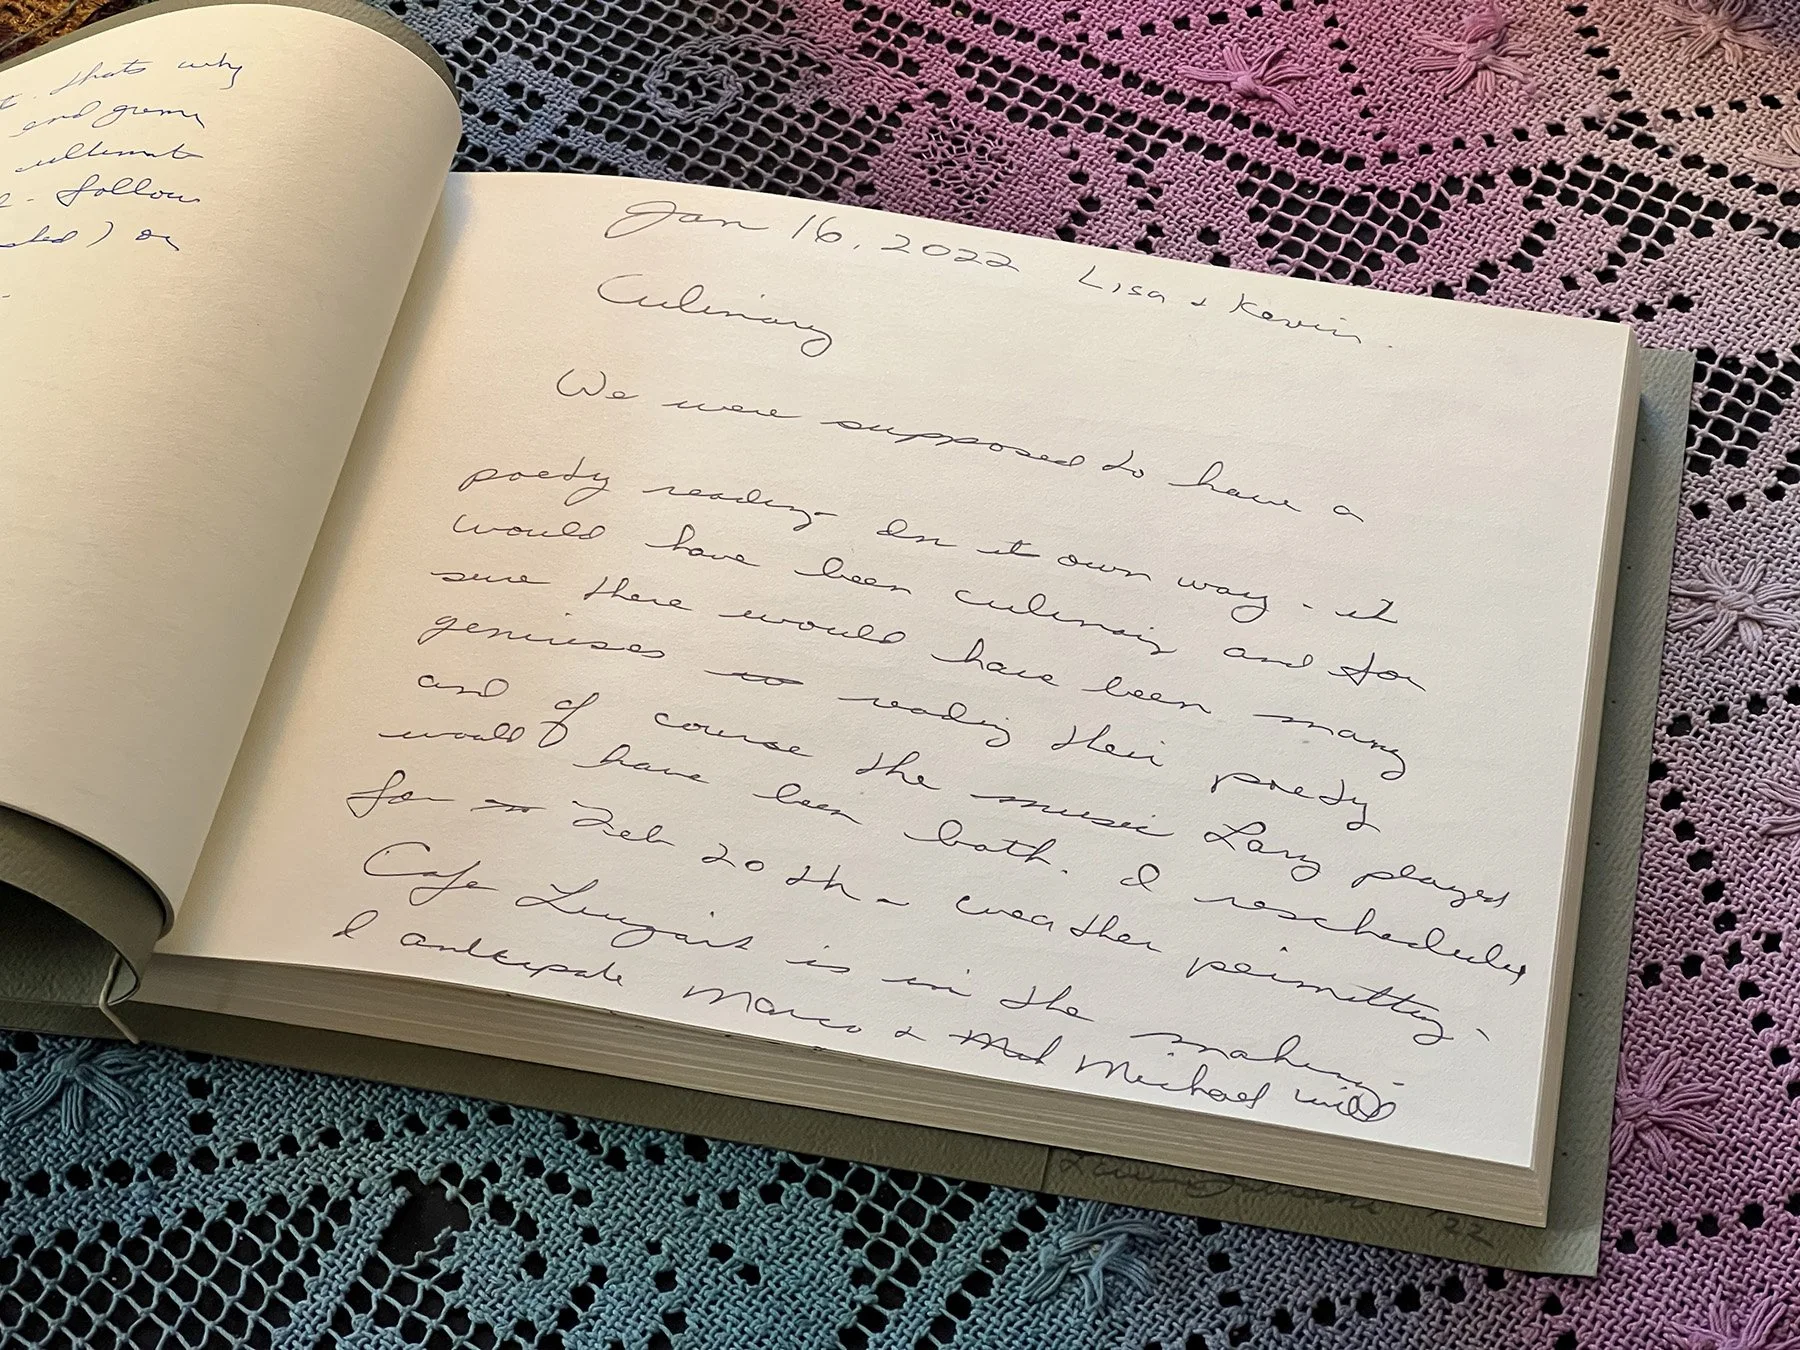 thats why
and
ultimate
follow
) or
Jan 16, 2022 Lisa + Kevin
Culinary
We were supposed to have a
poety reading In it own way - it
would have been culinary and for
sure there would have been many
geniuses to reading their poety
and of course the music Larry played
would have been both. I reschedule
for Feb 20th - weather peimitting -
Cafe is in the making
I anticipate Marco + Michael will
22